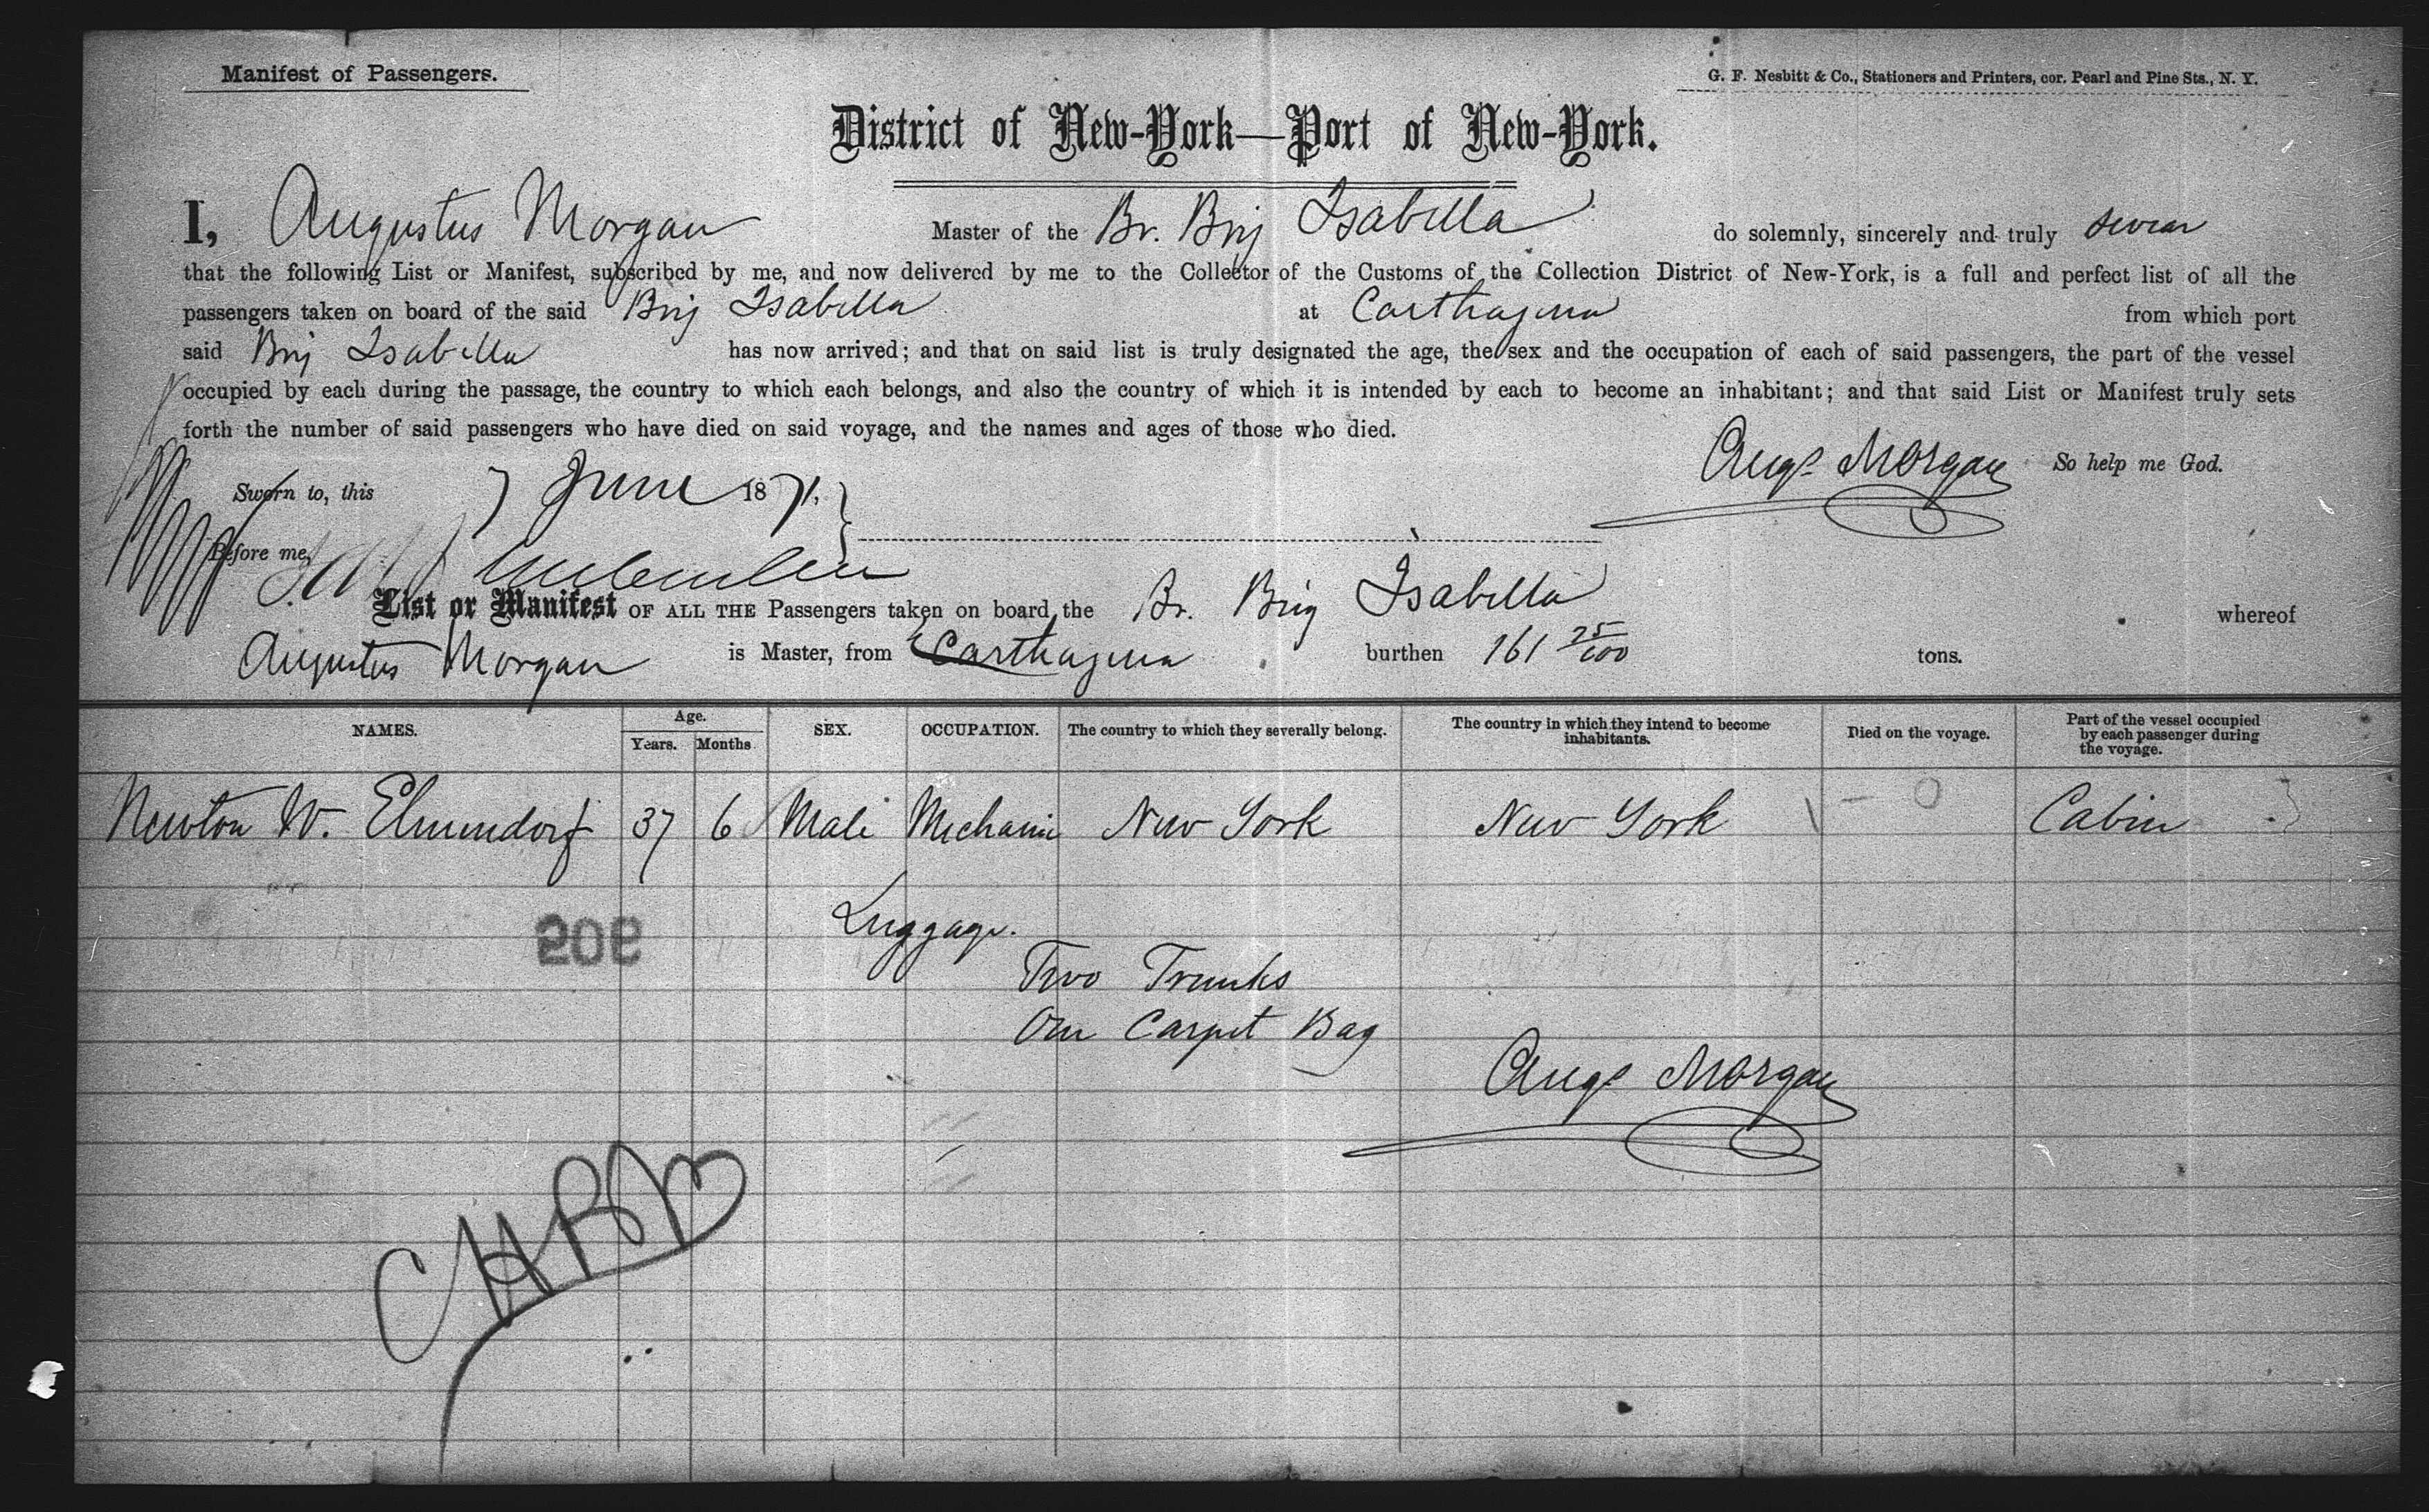 Manifest of Passengers.
G. F. Nesbitt & Co., Stationers and Printers, cor. Pearl and Pine Sts., N. Y.
District of New-York—Port of New-York.
I, Augustus Morgan Master of the Br. Brig Isabella do solemnly, sincerely and truly swear
that the following List or Manifest, subscribed by me, and now delivered by me to the Collector of the Customs of the Collection District of New-York, is a full and perfect list of all the
passengers taken on board of the said Brig Isabella at Carthagena from which port
said Brig Isabella has now arrived; and that on said list is truly designated the age, the sex and the occupation of each of said passengers, the part of the vessel
occupied by each during the passage, the country to which each belongs, and also the country of which it is intended by each to become an inhabitant; and that said List or Manifest truly sets
forth the number of said passengers who have died on said voyage, and the names and ages of those who died.
Augs Morgan So help me God.
Sworn to, this 7 June 1871.
Before me,
List or Manifest OF ALL THE Passengers taken on board the Br. Brig Isabella whereof
Augustus Morgan is Master, from Carthagena burthen 161 25/100 tons.
NAMES. Age. Years. Months. SEX. OCCUPATION. The country to which they severally belong. The country in which they intend to become inhabitants. Died on the voyage. Part of the vessel occupied by each passenger during the voyage.
Newton W. Elmendorf 37 6 Male Mechanic New York New York 0 Cabin
Luggage.
Two Trunks
One Carpet Bag
Augs Morgan